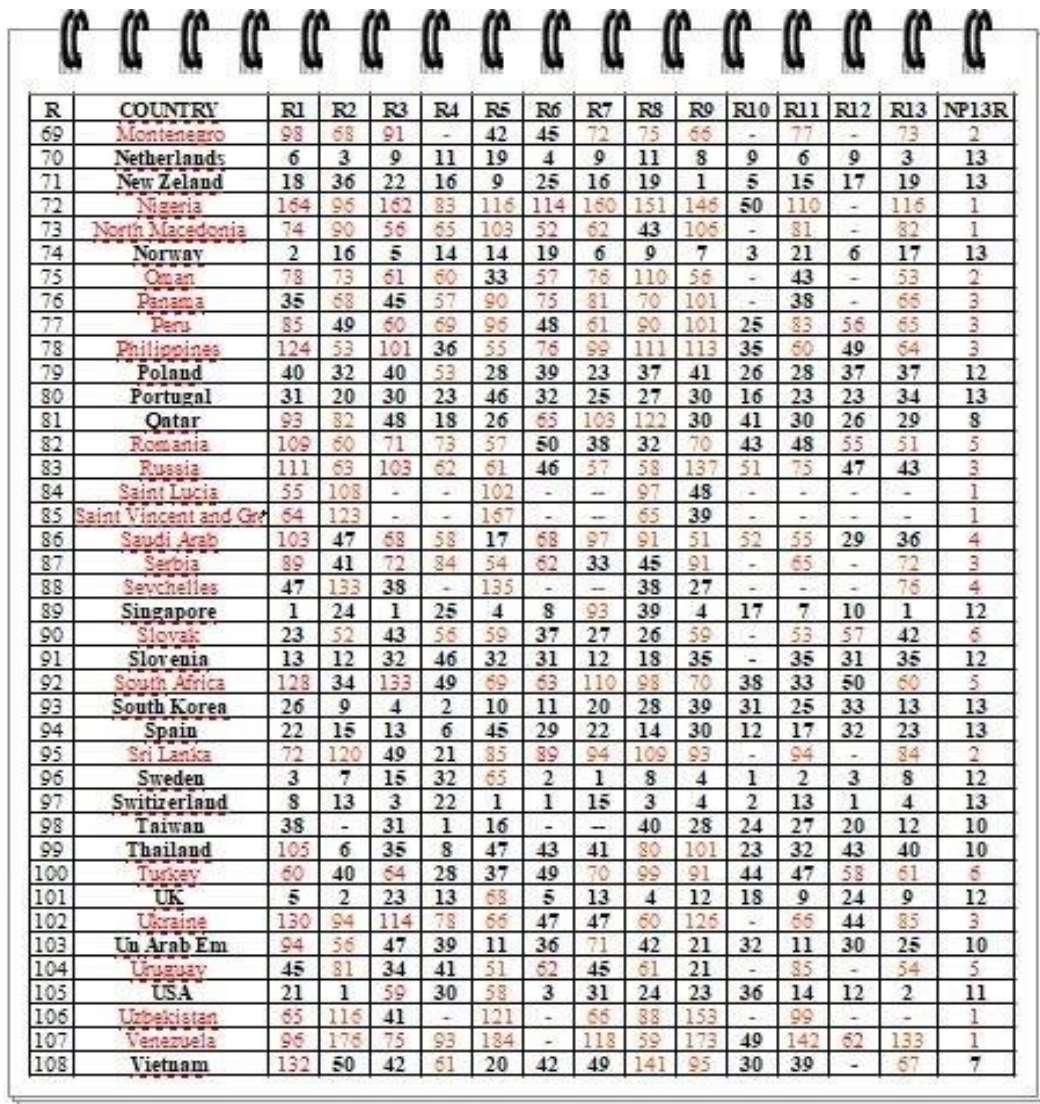 R COUNTRY R1 R2 R3 R4 R5 R6 R7 R8 R9 R10 R11 R12 R13 NP13R
69 Montenegro 98 68 91 - 42 45 72 75 66 - 77 - 73 2
70 Netherlands 6 3 9 11 19 4 9 11 8 9 6 9 3 13
71 New Zeland 18 36 22 16 9 25 16 19 1 5 15 17 19 13
72 Nigeria 164 96 162 83 116 114 160 151 146 50 110 - 116 1
73 North Macedonia 74 90 56 65 103 52 62 43 106 - 81 - 82 1
74 Norway 2 16 5 14 14 19 6 9 7 3 21 6 17 13
75 Oman 78 73 61 60 33 57 76 110 56 - 43 - 53 2
76 Panama 35 68 45 57 90 75 81 70 101 - 38 - 66 3
77 Peru 85 49 60 69 96 48 61 90 101 25 83 56 65 3
78 Philippines 124 53 101 36 55 76 99 111 113 35 60 49 64 3
79 Poland 40 32 40 53 28 39 23 37 41 26 28 37 37 12
80 Portugal 31 20 30 23 46 32 25 27 30 16 23 23 34 13
81 Qatar 93 82 48 18 26 65 103 122 30 41 30 26 29 8
82 Romania 109 60 71 73 57 50 38 32 70 43 48 55 51 5
83 Russia 111 63 103 62 61 46 57 58 137 51 75 47 43 3
84 Saint Lucia 55 108 - - 102 - -- 97 48 - - - - 1
85 Saint Vincent and Gr 64 123 - - 167 - -- 65 39 - - - - 1
86 Saudi Arab 103 47 68 58 17 68 97 91 51 52 55 29 36 4
87 Serbia 89 41 72 84 54 62 33 45 91 - 65 - 72 3
88 Seychelles 47 133 38 - 135 - -- 38 27 - - - 76 4
89 Singapore 1 24 1 25 4 8 93 39 4 17 7 10 1 12
90 Slovak 23 52 43 56 59 37 27 26 59 - 53 57 42 6
91 Slovenia 13 12 32 46 32 31 12 18 35 - 35 31 35 12
92 South Africa 128 34 133 49 69 63 110 98 70 38 33 50 60 5
93 South Korea 26 9 4 2 10 11 20 28 39 31 25 33 13 13
94 Spain 22 15 13 6 45 29 22 14 30 12 17 32 23 13
95 Sri Lanka 72 120 49 21 85 89 94 109 93 - 94 - 84 2
96 Sweden 3 7 15 32 65 2 1 8 4 1 2 3 8 12
97 Switizerland 8 13 3 22 1 1 15 3 4 2 13 1 4 13
98 Taiwan 38 - 31 1 16 - -- 40 28 24 27 20 12 10
99 Thailand 105 6 35 8 47 43 41 80 101 23 32 43 40 10
100 Turkey 60 40 64 28 37 49 70 99 91 44 47 58 61 6
101 UK 5 2 23 13 68 5 13 4 12 18 9 24 9 12
102 Ukraine 130 94 114 78 66 47 47 60 126 - 66 44 85 3
103 Un Arab Em 94 56 47 39 11 36 71 42 21 32 11 30 25 10
104 Uruguay 45 81 34 41 51 62 45 61 21 - 85 - 54 5
105 USA 21 1 59 30 58 3 31 24 23 36 14 12 2 11
106 Uzbekistan 65 116 41 - 121 - 66 88 153 - 99 - - 1
107 Venezuela 96 176 75 93 184 - 118 59 173 49 142 62 133 1
108 Vietnam 132 50 42 61 20 42 49 141 95 30 39 - 67 7